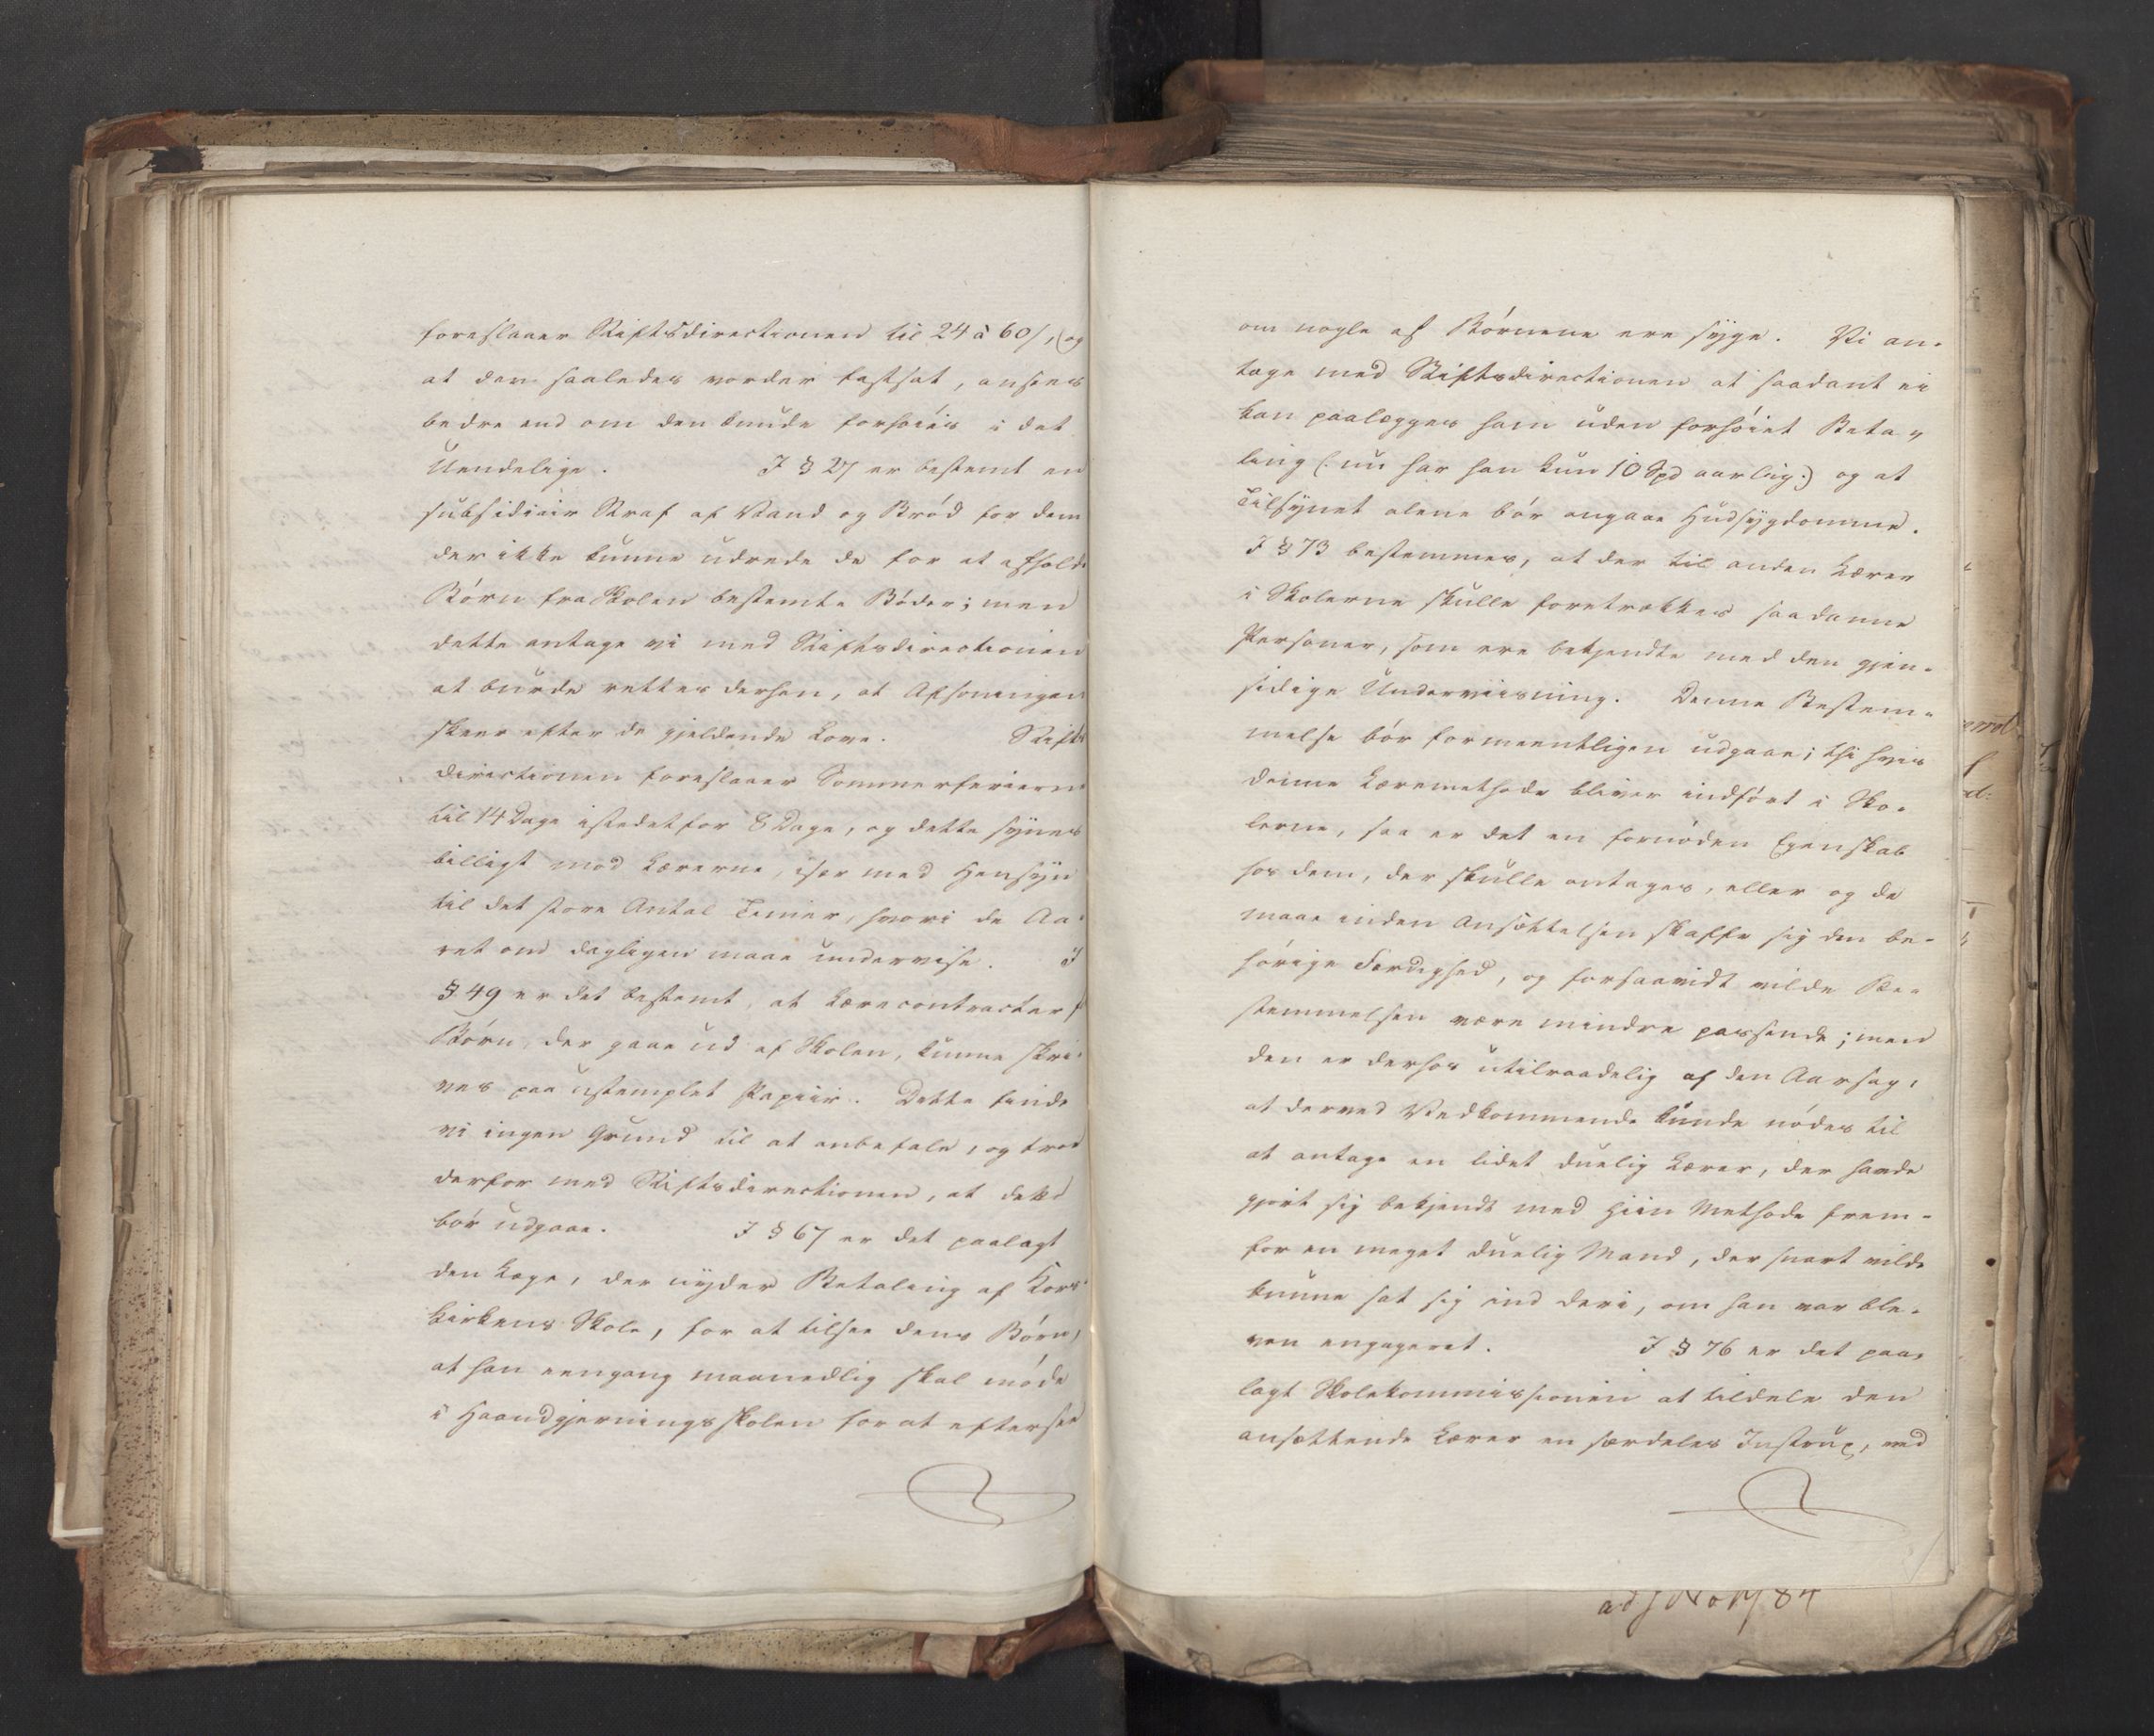 foreslaaer Stiftsdirectionen til 24 à 60 ß, og
at den saaledes vorder fastsat, ansees
bedre end om den kunde forhøies i det
Uendelige. I § 27 er bestemt en
subsidiair Straf af Vand og Brød for dem
der ikke kunne udrede de for at afholde
Børn fra Skolen bestemte Bøder; men
dette antage vi med Stiftsdirectionen
at burde rettes derhen, at Afsoningen
skeer efter de gjeldende Love. Stifts
directionen foreslaaer Sommerferierne
til 14 Dage istedetfor 8 Dage, og dette synes
billigt mod Lærerne, især med Hensyn
til det store Antal Timer, hvori de Aa-
ret om dagligen maae undervise. I
§ 49 er det bestemt, at Lærecontracter f
Børn, der gaae ud af Skolen, kunne skri-
ves paa ustemplet Papiir. Dette finde
vi ingen Grund til at anbefale, og troe
derfor med Stiftsdirectionen, at dette
bør udgaae. I § 67 er det paalagt
den Læge, der nyder Betaling af Kors-
kirkens Skole, for at tilsee dens Børn,
at han eengang maanedlig skal møde
i Haandgjerningsskolen for at efterse
om nogle af Børnene ere syge. Vi an-
tage med Stiftsdirectionen at saadant ei
kan paalægges ham uden forhøiet Beta-
ling (: nu har han kun 10 Spd aarlig :) og at
Tilsynet alene bør angaae Hudsygdomme.
I § 73 bestemmes, at der til anden Lærer
i Skolerne skulle foretrækkes saadanne
Personer, som ere bekjendte med den gjen-
sidige Underviisning. Denne Bestem-
melse bør formeentligen udgaae; thi hvis
denne Læremethode bliver indført i Sko-
lerne, saa er det en fornøden Egenskab
hos dem, der skulle antages, eller og de
maae inden Ansættelsen skaffe sig den be-
hørige Færdighed, og forsaavidt vilde Be-
stemmelsen være mindre passende; men
den er derhos utilraadelig af den Aarsag,
at derved Vedkommende kunde nødes til
at antage en lidet duelig Lærer, der havde
gjort sig bekjendt med hiin Methode frem-
for en meget duelig Mand, der snart vilde
kunne sat sig ind deri, om han var ble-
ven engageret. I § 76 er det paa-
lagt Skolekommissionen at tildele den
ansættende Lærer en særdeles Instrux, ved